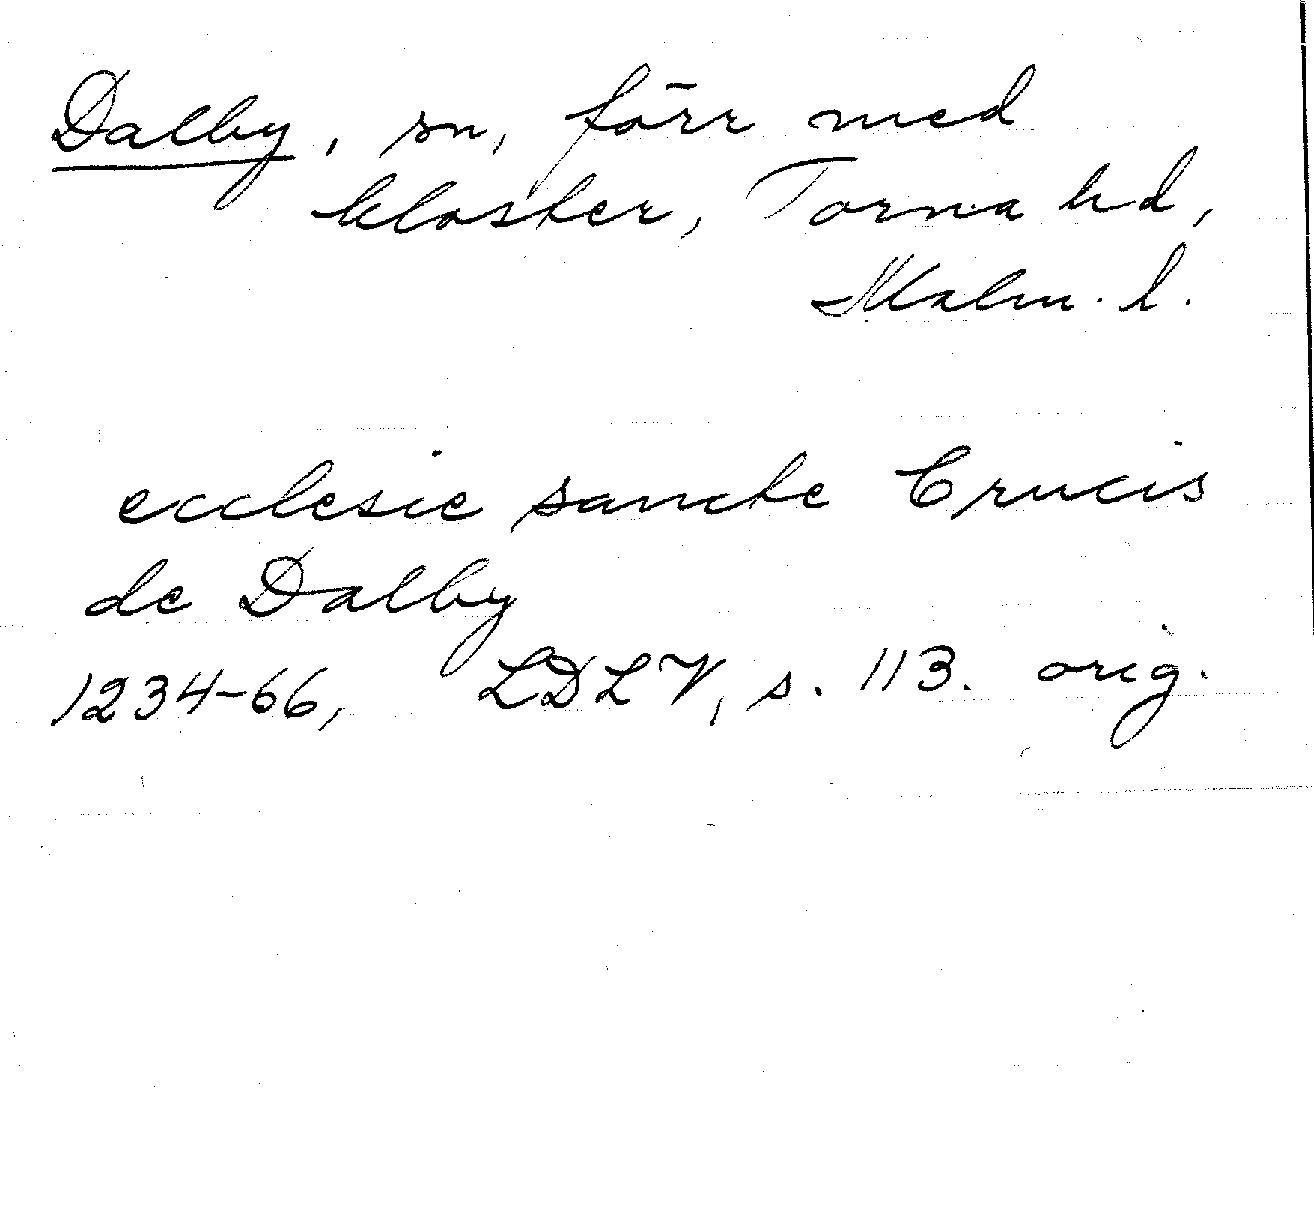 Dalby, sn, förr med
kloster, Torna hd,
Malm. l.
ecclesie sancte Crucis
de Dalby
1234-66, LDLV, s. 113. orig.